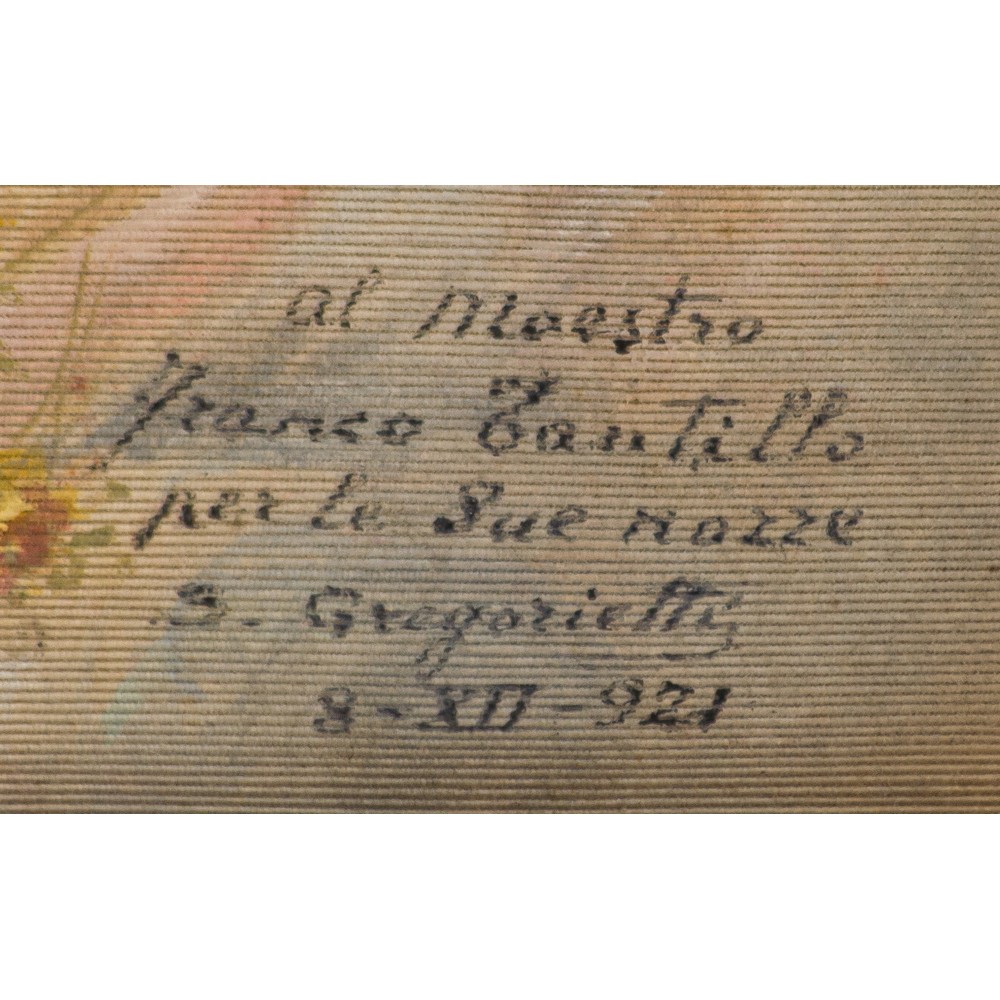 al Maestro
Franco Tantillo
per le Sue nozze
S. Gregorietti
8-XII-921